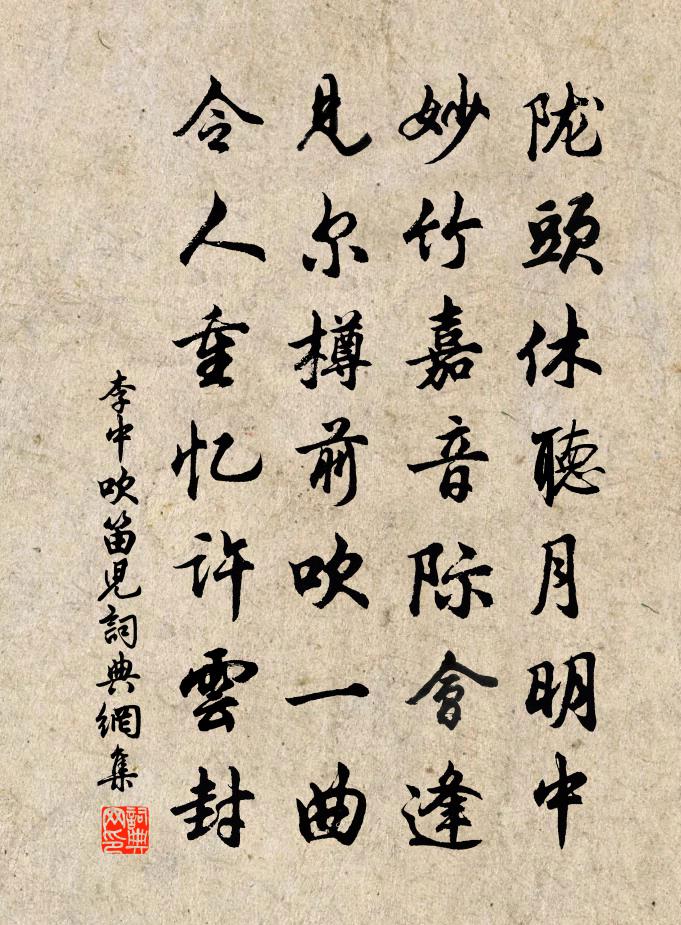 陇頭休聽月明中
妙竹嘉音际會逢
見尔樽前吹一曲
令人重忆許雲封
李中吹笛児詞典網集
詞典网印